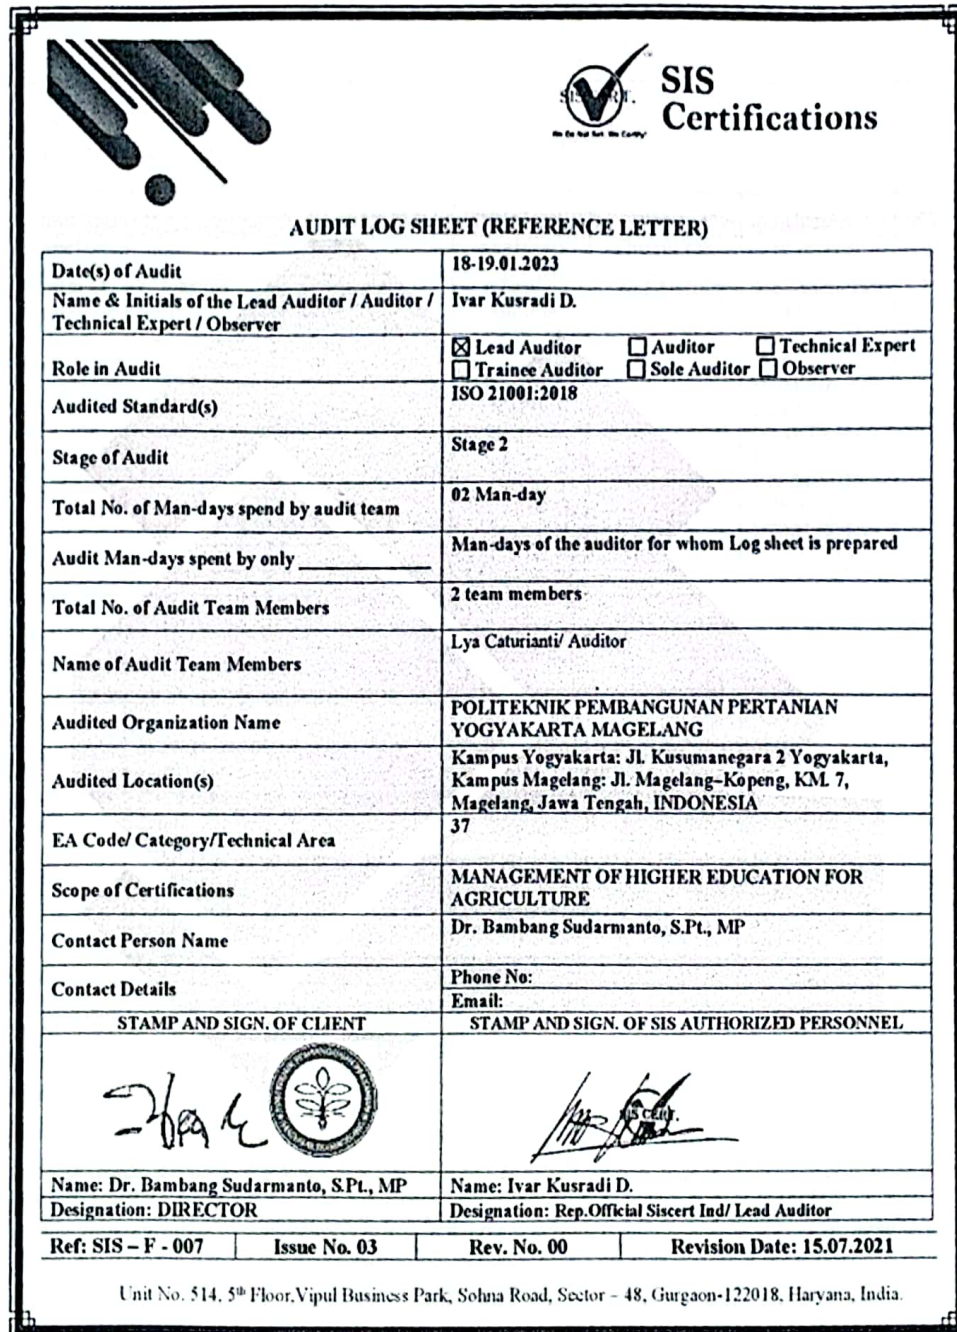 SIS
Certifications
We Do Not Sell. We Certify
AUDIT LOG SHEET (REFERENCE LETTER)
Date(s) of Audit
18-19.01.2023
Name & Initials of the Lead Auditor / Auditor /
Technical Expert / Observer
Ivar Kusradi D.
Role in Audit
☒ Lead Auditor ☐ Auditor ☐ Technical Expert
☐ Trainee Auditor ☐ Sole Auditor ☐ Observer
Audited Standard(s)
ISO 21001:2018
Stage of Audit
Stage 2
Total No. of Man-days spend by audit team
02 Man-day
Audit Man-days spent by only ____________
Man-days of the auditor for whom Log sheet is prepared
Total No. of Audit Team Members
2 team members
Name of Audit Team Members
Lya Caturianti/ Auditor
Audited Organization Name
POLITEKNIK PEMBANGUNAN PERTANIAN
YOGYAKARTA MAGELANG
Audited Location(s)
Kampus Yogyakarta: Jl. Kusumanegara 2 Yogyakarta,
Kampus Magelang: Jl. Magelang–Kopeng, KM. 7,
Magelang, Jawa Tengah, INDONESIA
EA Code/ Category/Technical Area
37
Scope of Certifications
MANAGEMENT OF HIGHER EDUCATION FOR
AGRICULTURE
Contact Person Name
Dr. Bambang Sudarmanto, S.Pt., MP
Contact Details
Phone No:
Email:
STAMP AND SIGN. OF CLIENT
STAMP AND SIGN. OF SIS AUTHORIZED PERSONNEL
SIS CERT.
Name: Dr. Bambang Sudarmanto, S.Pt., MP
Name: Ivar Kusradi D.
Designation: DIRECTOR
Designation: Rep.Official Siscert Ind/ Lead Auditor
Ref: SIS – F - 007 Issue No. 03 Rev. No. 00 Revision Date: 15.07.2021
Unit No. 514, 5th Floor,Vipul Business Park, Sohna Road, Sector – 48, Gurgaon-122018, Haryana, India.